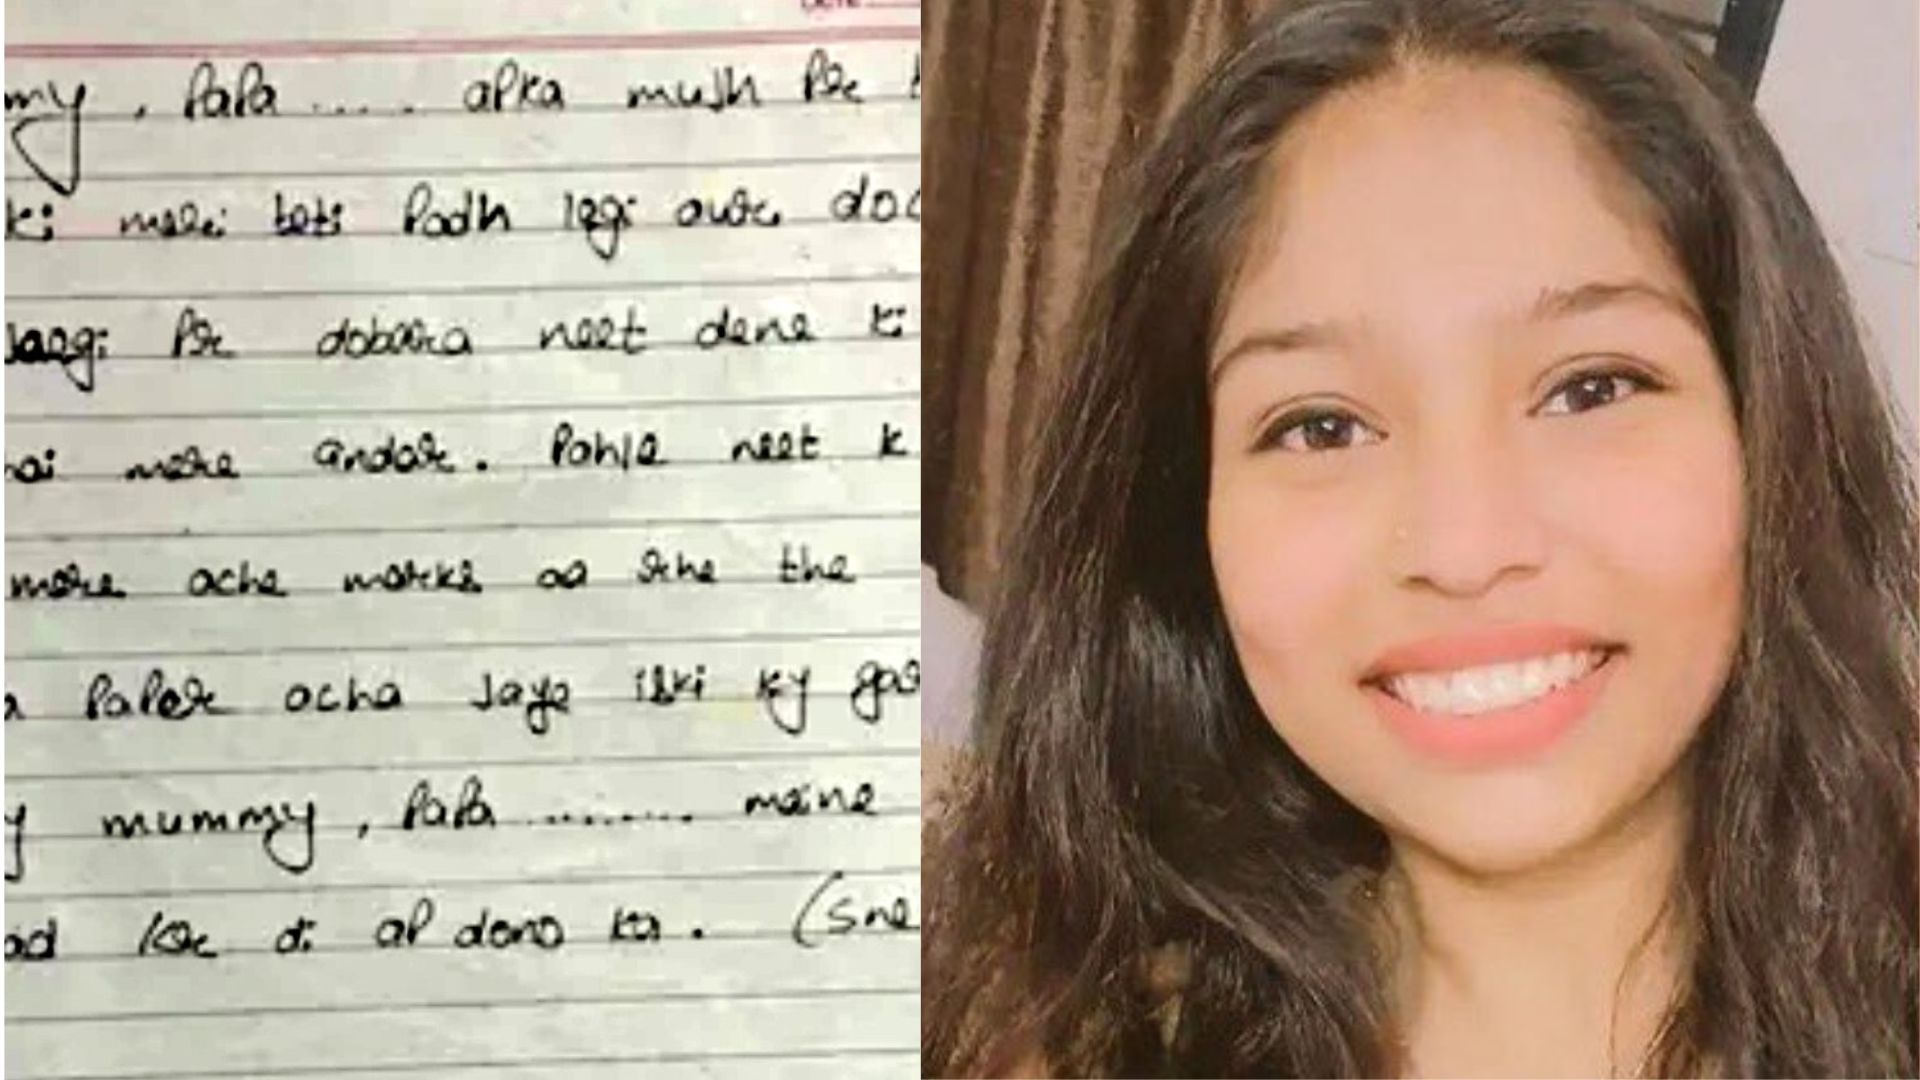 my, PaPa ..... aPka mujh Per
ki meri beti Padh legi aur doc
jaegi Per dobara neet dene ki
hai mere andar. Pahle neet k
mere ache marks aa rhe the
PaPer acha jaye iski ky gar
y mummy, PaPa ......... maine
ad kar di aP dono ka. (Sne